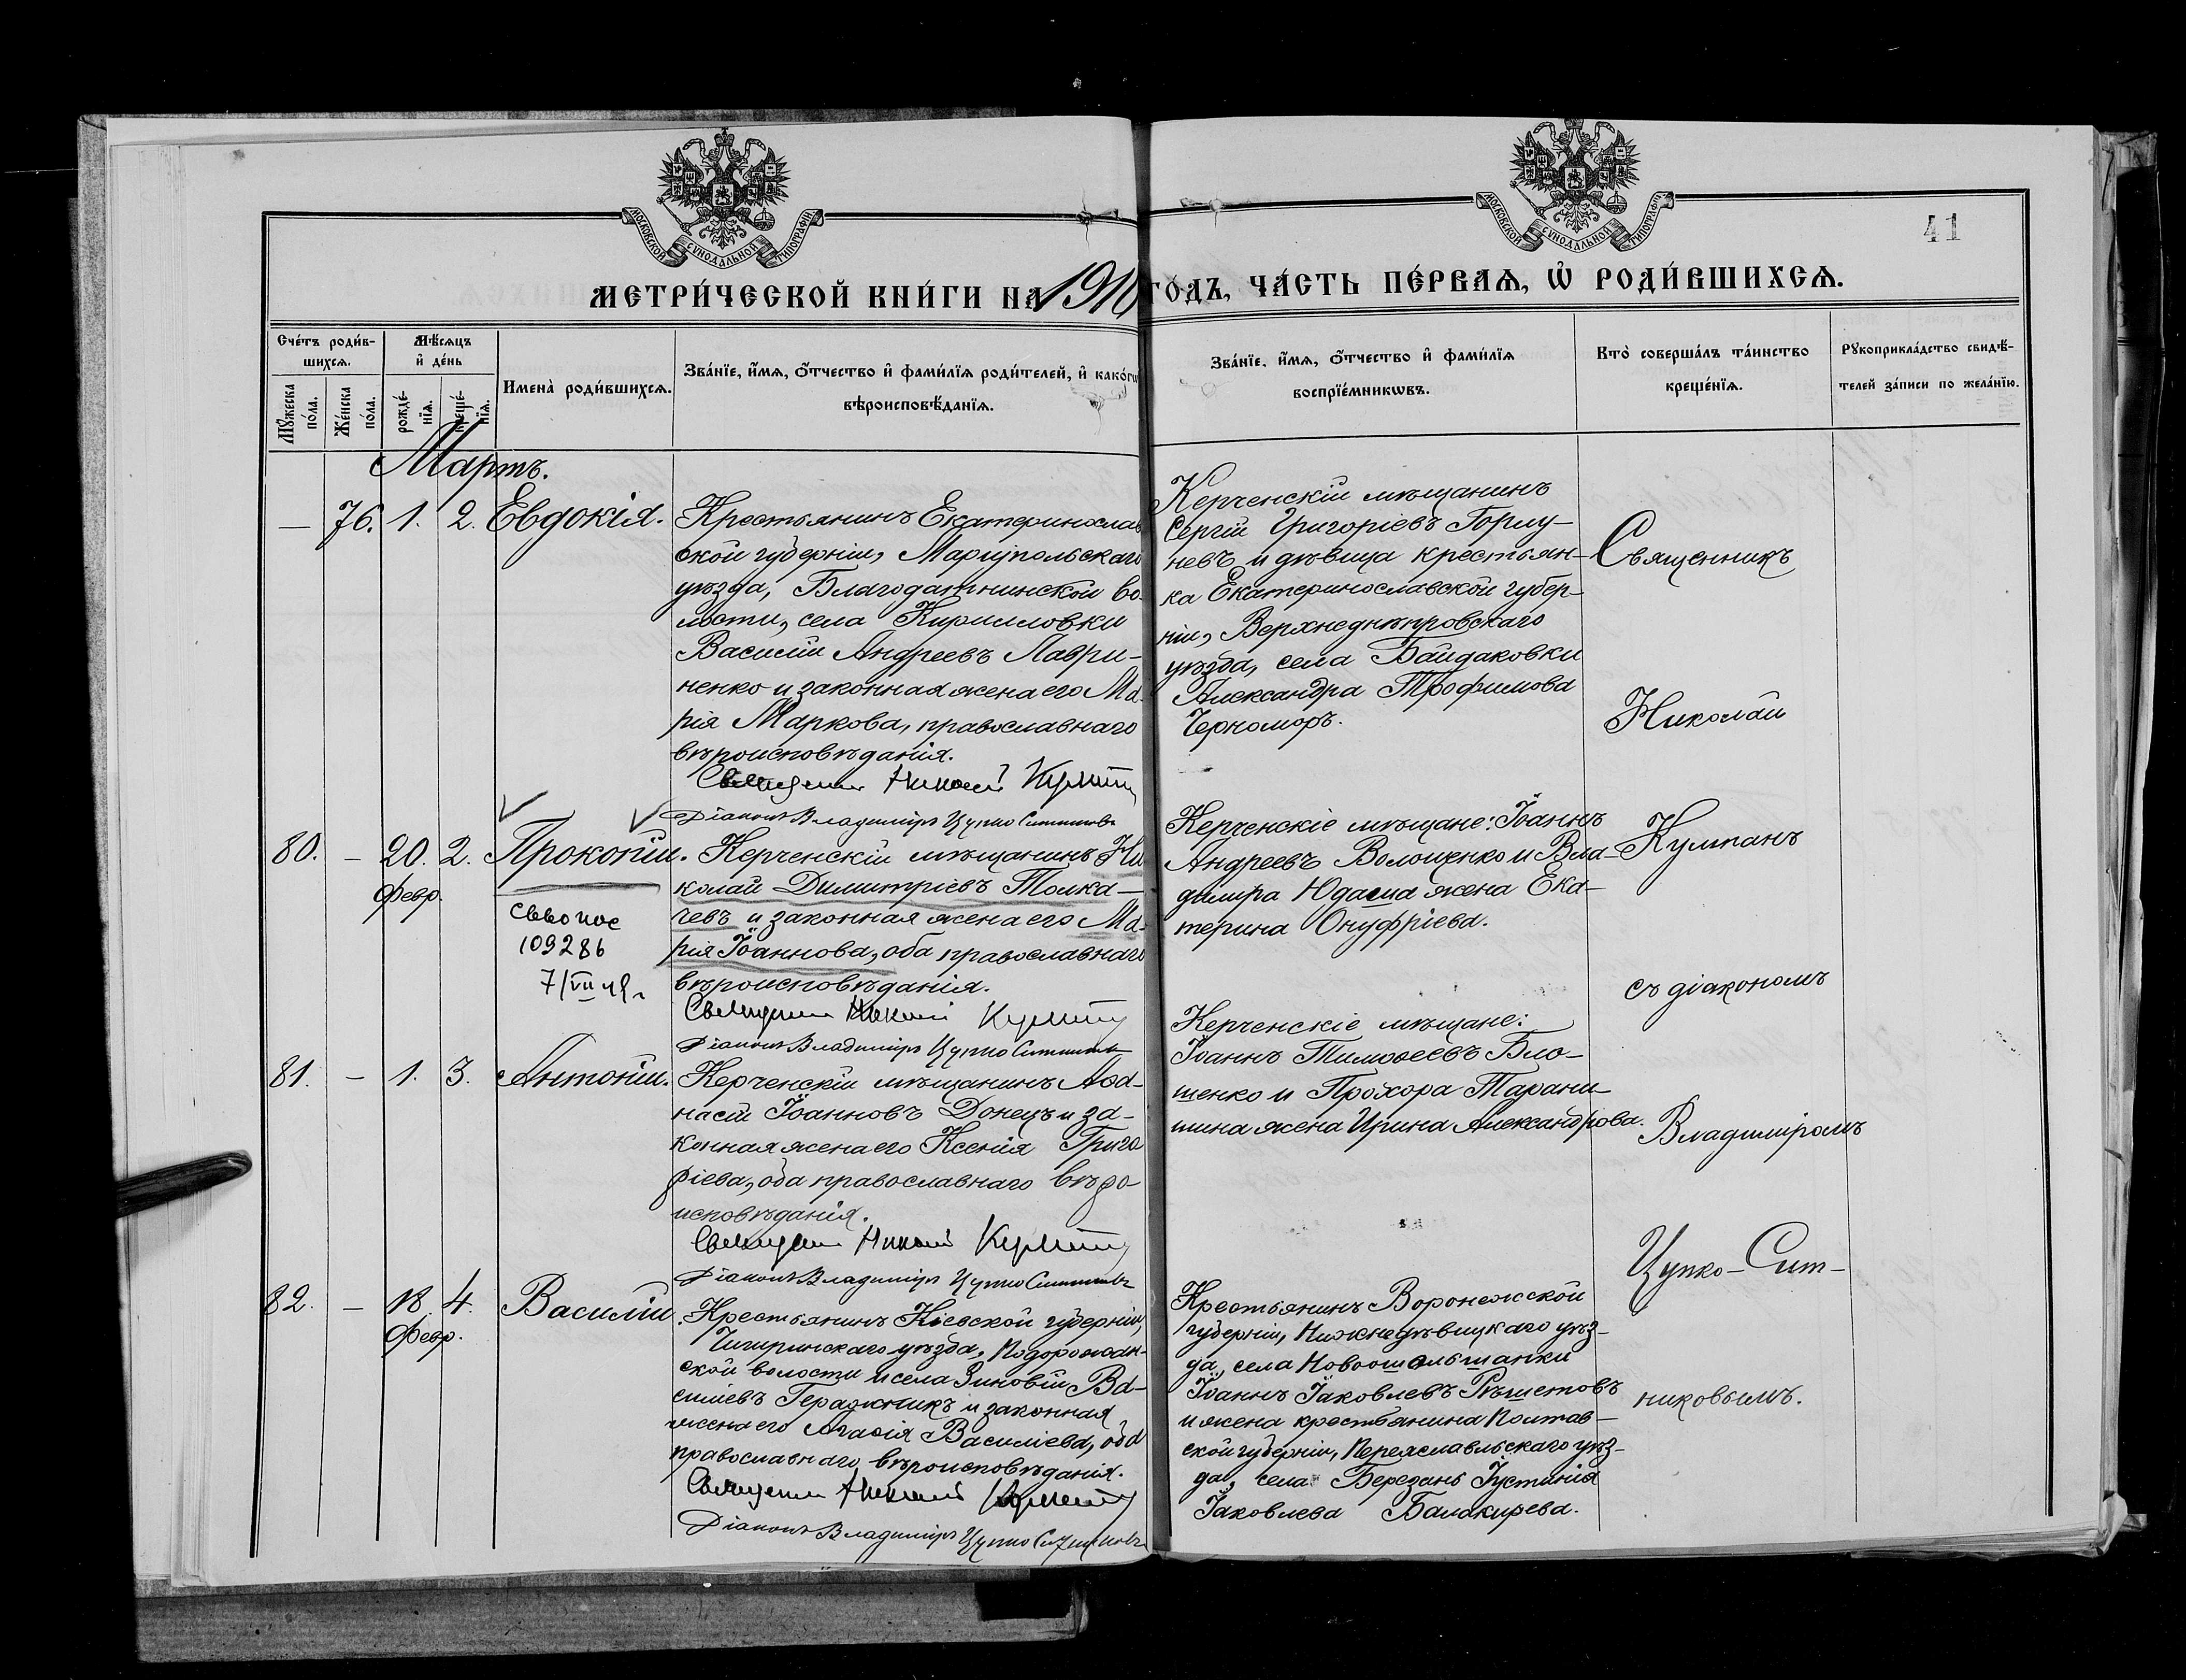 МОСКОВСКОЙ СѴНОДАЛЬНОЙ ТИПОГРАФІИ
МОСКОВСКОЙ СѴНОДАЛЬНОЙ ТИПОГРАФІИ
41
МЕТРИ́ЧЕСКОЙ КНИ́ГИ НА 1910 ГО́ДЪ, ЧА́СТЬ ПЕ́РВАѦ, Ѡ РОДИ́ВШИХСѦ.
Сче́тъ роди́в-
шихсѧ.
Мꙋ́жеска
по́ла.
Же́нска
по́ла.
Мѣ́сѧцъ
и҆ де́нь
рожде́-
нїѧ.
креще́-
нїѧ.
Имена̀ роди́вшихсѧ.
Зва́нїе, и҆́мѧ, ѻ҆́тчество и҆ фами́лїѧ роди́телей, и҆ како́гѡ
вѣроисповѣ́данїѧ.
Зва́нїе, и҆́мѧ, ѻ҆́тчество и҆ фами́лїѧ
воспрїе́мникѡвъ.
Кто̀ соверша́лъ та́инство
креще́нїѧ.
Рꙋкоприкла́дство свидѣ́-
телей за́писи по жела́нїю.
Мартъ.
— 76. 1. 2. Евдокія.
Крестьянинъ Екатеринослав
ской губерніи, Маріупольскаго
уѣзда, Благодатнинской во-
лости, села Кирилловки
Василій Андреевъ Лаври-
ненко и законная жена его Ма-
рія Маркова, православнаго
вѣроисповѣданія.
Священникъ Николай Кулпанъ
Діаконъ Владиміръ Цупко Ситниковъ
Керченскій мѣщанинъ
Сергій Григоріевъ Горлу-
невъ и дѣвица крестьян-
ка Екатеринославской губер-
ніи, Верхнеднѣпровскаго
уѣзда, села Байдаковки
Александра Трофимова
Черноморъ.
80. — 20. 2. Прокопій.
Февр.
109286
7/VII 48 г.
Керченскій мѣщанинъ Ни
колай Димитріевъ Толка-
чевъ и законная жена его Ма-
рія Іоаннова, оба православнаго
вѣроисповѣданія.
Священникъ Николай Кулпанъ
Діаконъ Владиміръ Цупко Ситниковъ
Керченскіе мѣщане: Іоаннъ
Андреевъ Волощенко и Вла-
диміра Юдаша жена Ека-
терина Онуфріева.
81. — 1. 3. Антоній.
Керченскій мѣщанинъ Аѳа-
насій Іоанновъ Донецъ и за-
конная жена его Ксенія Григо
ріева, оба православнаго вѣро-
исповѣданія.
Священникъ Николай Кулпанъ
Діаконъ Владиміръ Цупко Ситниковъ
Керченскіе мѣщане:
Іоаннъ Тимоѳеевъ Бло-
шенко и Прохора Тарани-
шина жена Ирина Александрова.
82. — 18 4. Василій
Февр.
Крестьянинъ Кіевской губерніи,
Чигиринскаго уѣзда, Подорожан-
ской волости и села Зиновій Ва-
силіевъ Геражникъ и законная
жена его Агаѳія Василіева, оба
православнаго вѣроисповѣданія.
Священникъ Николай Кулпанъ
Діаконъ Владиміръ Цупко Ситниковъ
Крестьянинъ Воронежской
губерніи, Нижнедѣвицкаго уѣз-
да, села Новоольшанки
Іоаннъ Іаковлевъ Рѣшетовъ
и жена крестьянина Полтав-
ской губерніи, Переяславльскаго уѣз-
да, села Березань Іустинія
Іаковлева Балакирева.
Священникъ
Николай
Кулпанъ
съ діакономъ
Владиміромъ
Цупко-Сит-
никовымъ.